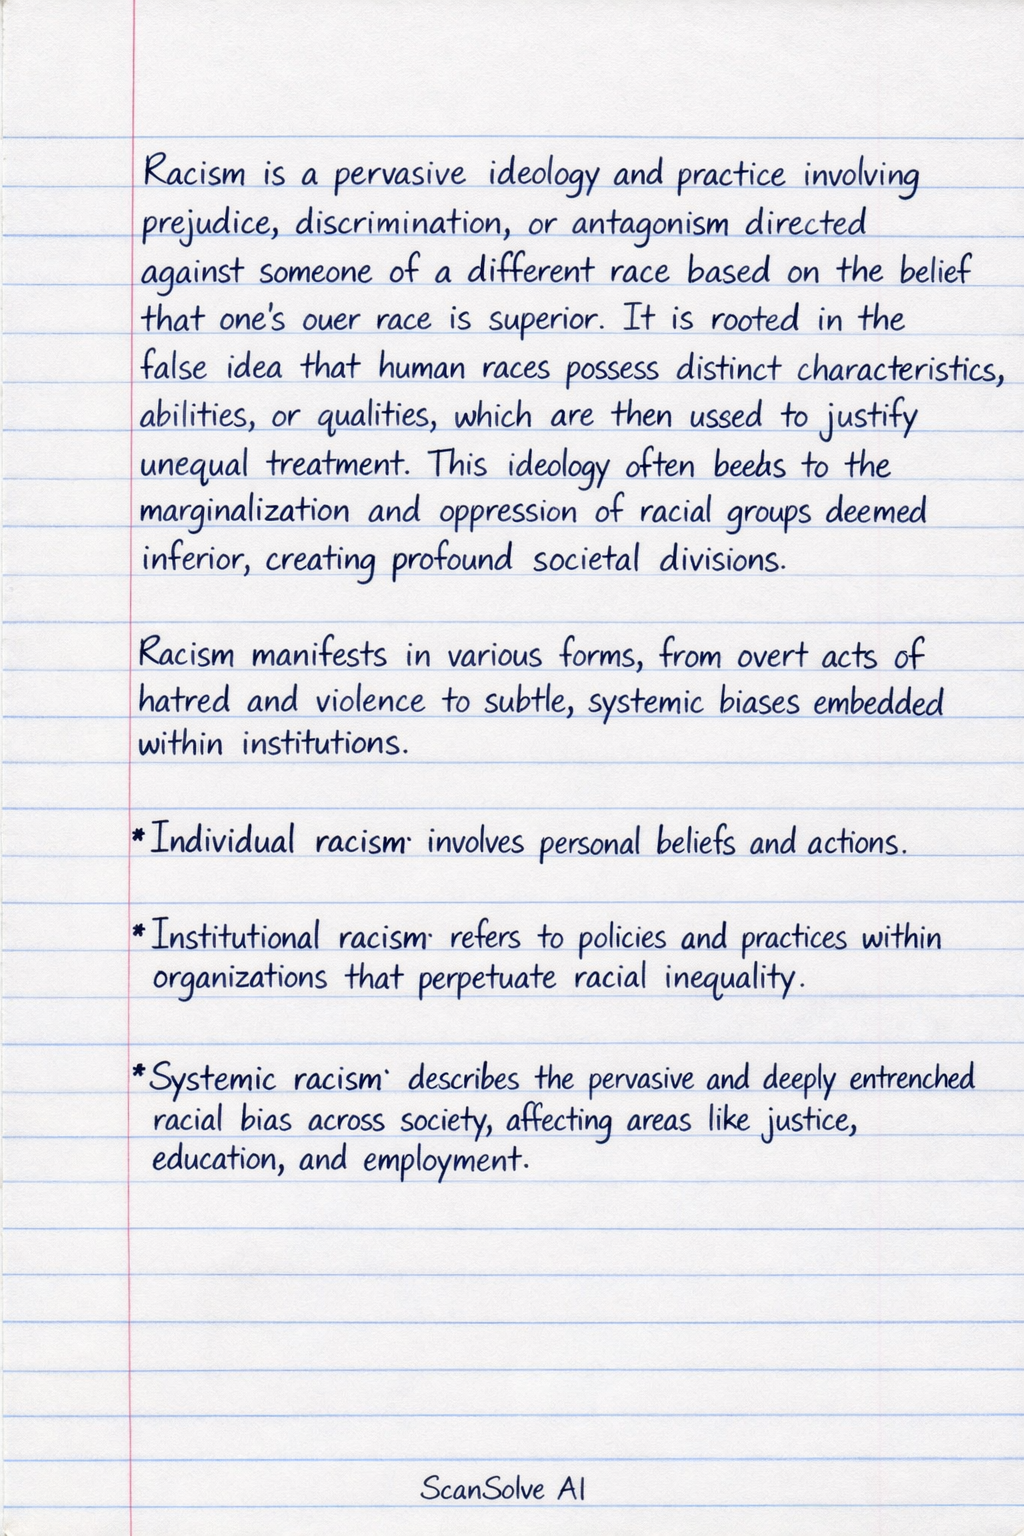 Racism is a pervasive ideology and practice involving
prejudice, discrimination, or antagonism directed
against someone of a different race based on the belief
that one's ouer race is superior. It is rooted in the
false idea that human races possess distinct characteristics,
abilities, or qualities, which are then ussed to justify
unequal treatment. This ideology often to the
marginalization and oppression of racial groups deemed
inferior, creating profound societal divisions.
Racism manifests in various forms, from overt acts of
hatred and violence to subtle, systemic biases embedded
within institutions.
*Individual racism· involves personal beliefs and actions.
*Institutional racism· refers to policies and practices within
organizations that perpetuate racial inequality.
*Systemic racism· describes the pervasive and deeply entrenched
racial bias across society, affecting areas like justice,
education, and employment.
ScanSolve AI